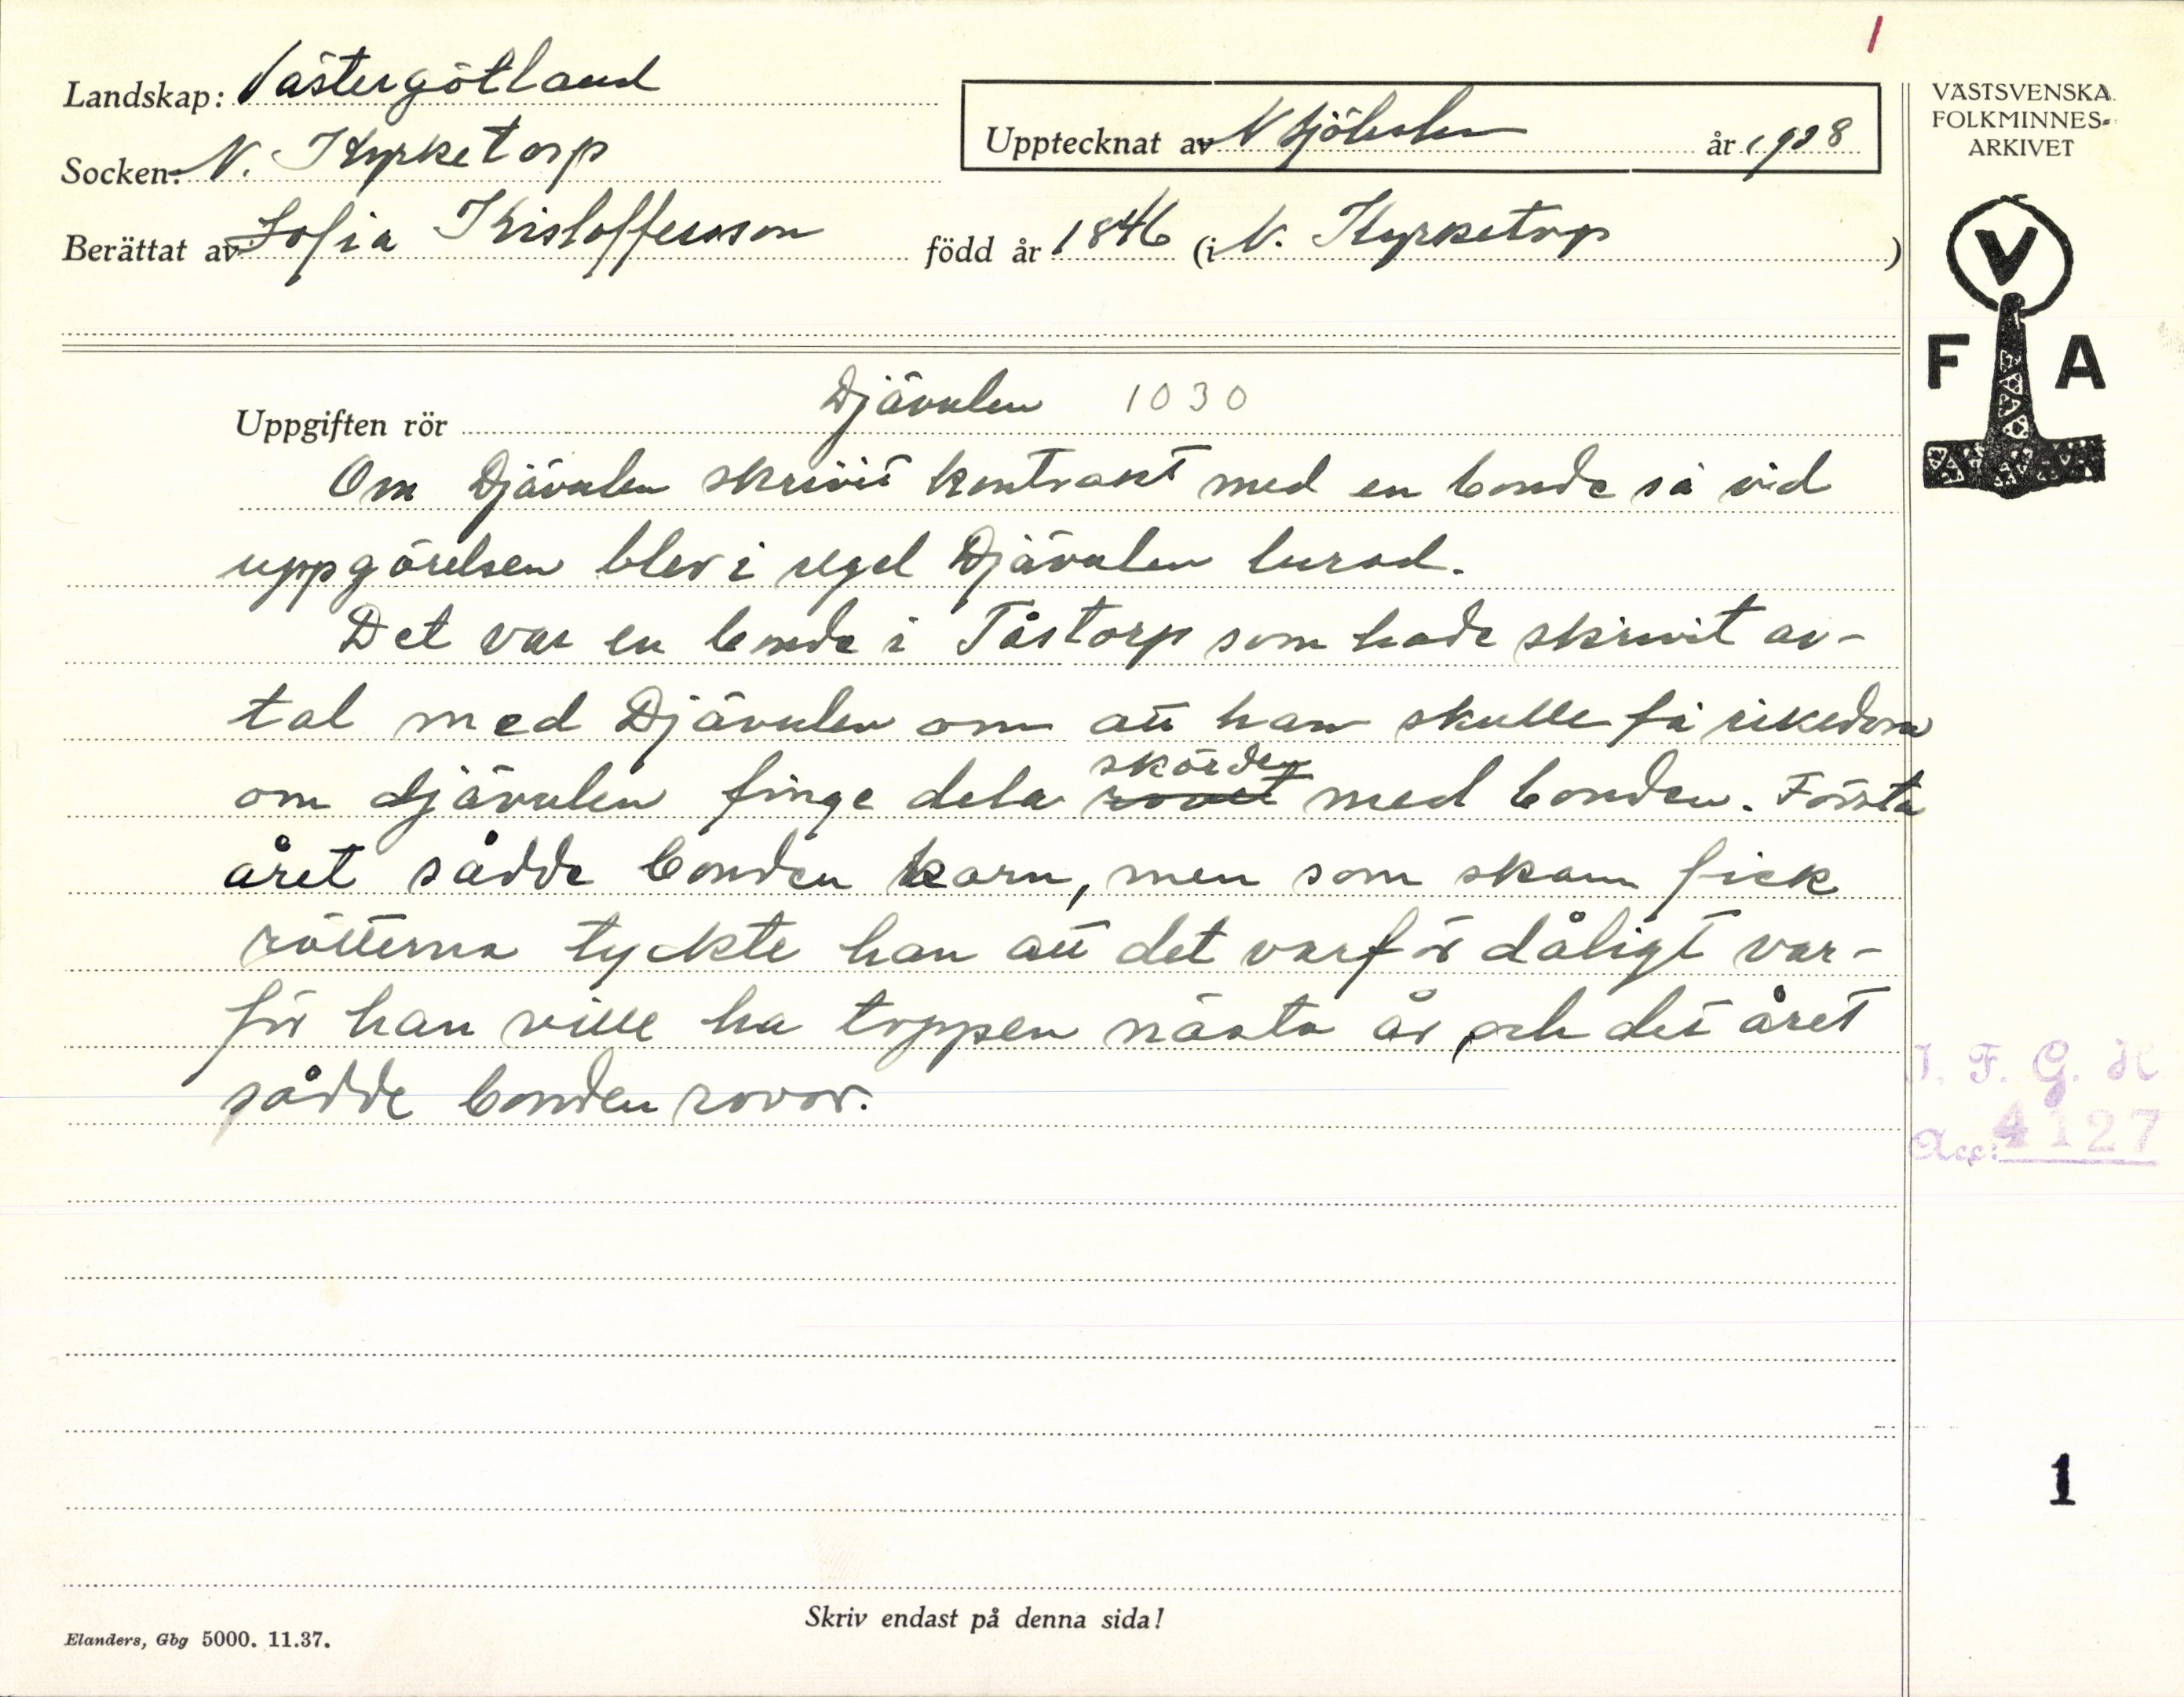 1
Landskap: Västergötland
Socken: N. Kyrketorp
Upptecknat av N år 1938
Berättat av Sofia Kristoffersson född år 1846 (i N. Kyrketorp)
VÄSTSVENSKA
FOLKMINNES-
ARKIVET
V
F A
Uppgiften rör Djävulen 1030
Om Djävulen skrivit kontrakt med en bonde så vid
uppgörelsen blev i regel Djävulen lurad.
Det var en bonde i Tåstorp som hade skrivit av-
tal med Djävulen om att han skulle få rikedom
skörden
om djävulen finge dela rovet med bonden. Första
året sådde bonden korn, men som skam fick
rötterna tyckte han att det var för dåligt var-
för han ville ha toppen nästa år, och det året
sådde bonden rovor.
I. F. G. H
Acc: 4127
1
Skriv endast på denna sida!
Elanders, Gbg 5000. 11.37.